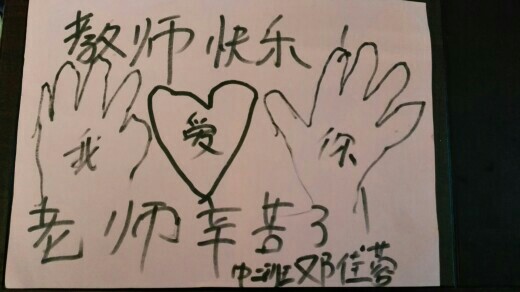 教师快乐
我 爱 你
老师辛苦了
中二班邓佳蓉